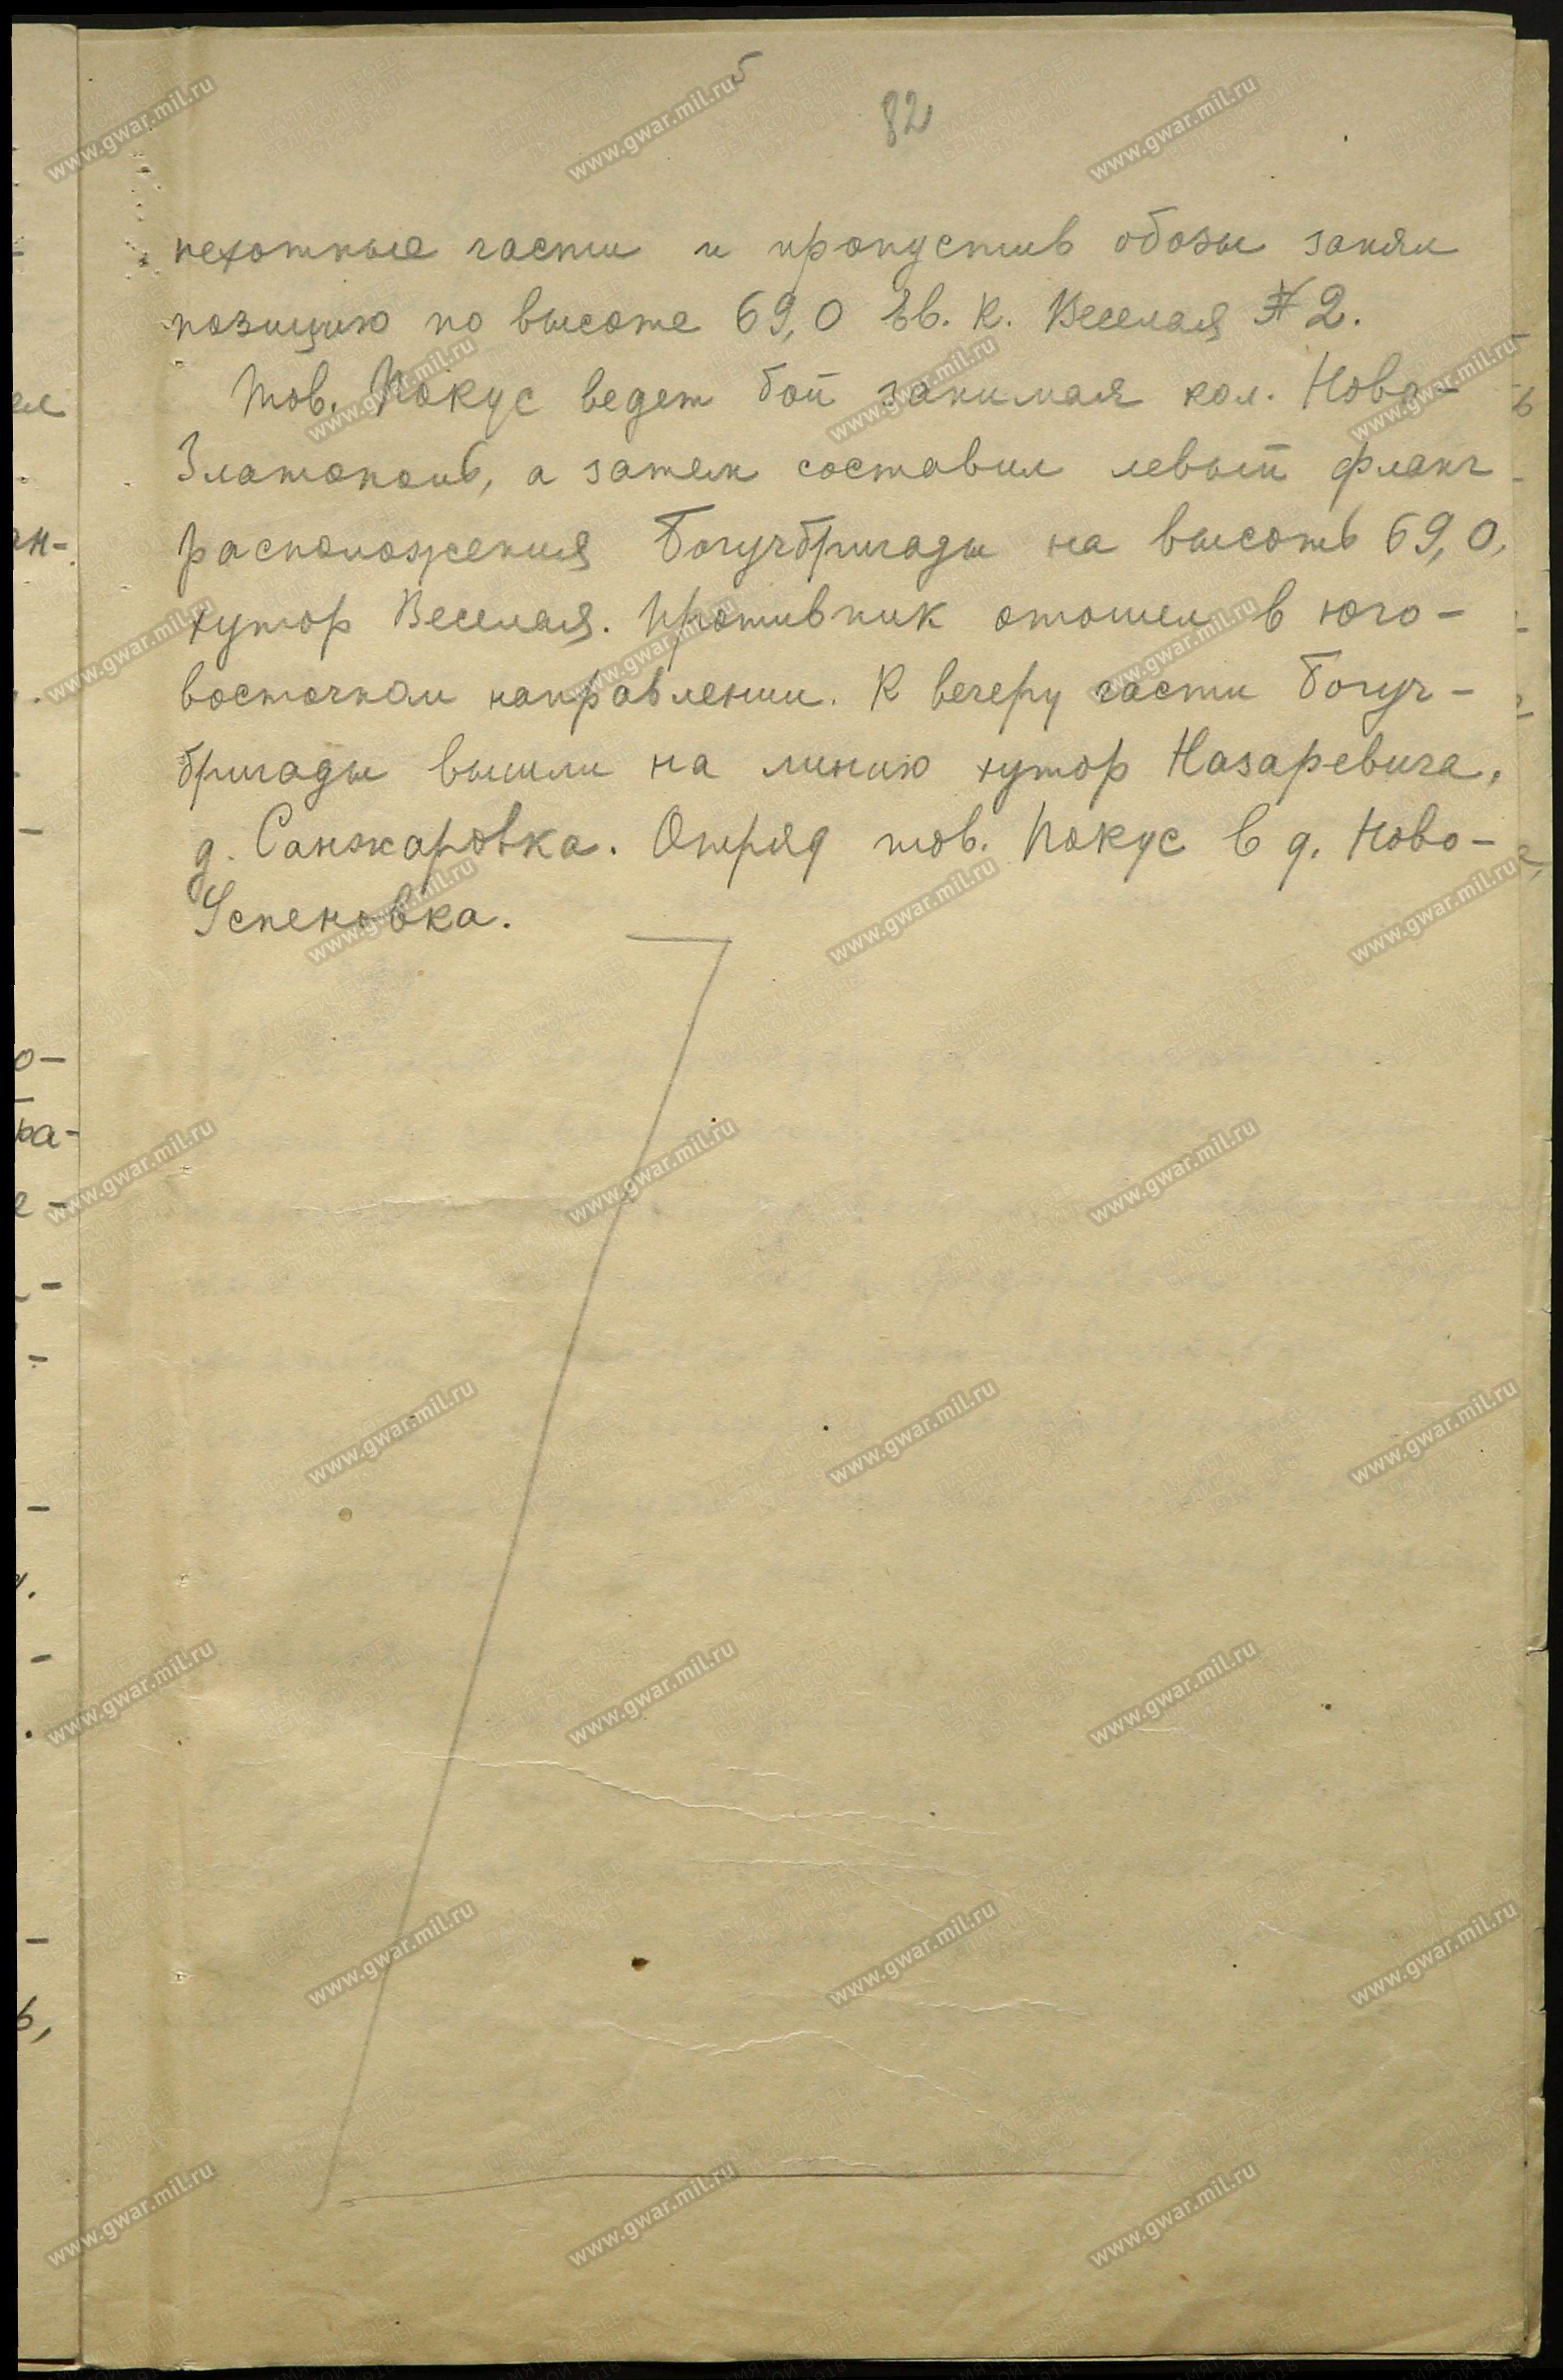 5
82
пехотные части и пропустив обозы занял
позицию по высоте 69,0 Ев. К. Веселая № 2.
Тов. Покус ведет бой занимая кол. Ново-
Златополь, а затем составил левый фланг
расположения Богучбригады на высоть 69,0,
хутор Веселая. Противник отошел в юго-
восточном направлении. К вечеру части Богуч-
бригады вышли на линию хутор Назаревича,
д. Санжаровка. Отряд тов. Покус в д. Ново-
Успеновка.
www.gwar.mil.ru